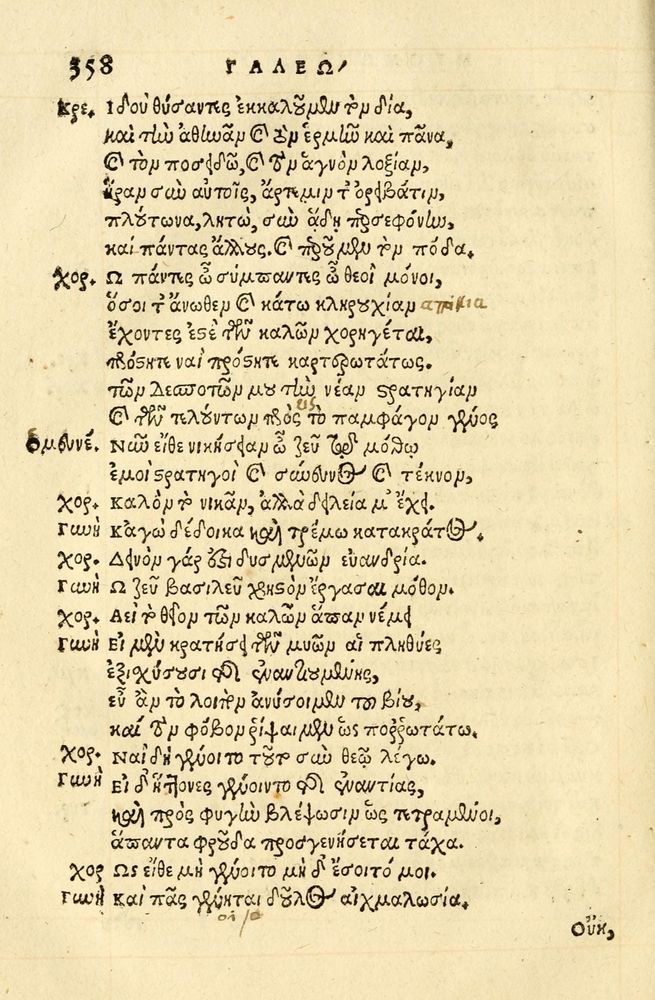 358 ΓΑΛΕΩ
Κρε. Ιδοὺ θύσαντες ἐκκαλοῦμεν τὸν δία,
καὶ τὴν ἀθηνᾶν καὶ τὸν ἑρμῆν καὶ πᾶνα,
καὶ τὸν ποσειδῶ, καὶ τὸν ἁγνὸν λοξίαν,
ἥραν σὺν αὐτοῖς, ἄρτεμιν τ' ὀρειβάτιν,
πλούτωνα, λητὼ, σὺν ἅδῃ προσεφόνην,
καὶ πάντας ἄλλους. καὶ προῦμεν τὸν πόδα.
Χορ. Ω πάντες ὦ σύμπαντες ὦ θεοὶ μόνοι,
ὅσοι τ' ἄνωθεν καὶ κάτω κληρουχίαν
ἔχοντες ἐστὲ τῶν καλῶν χορηγέται,
πρόστητε ναὶ πρόστητε καρτερωτάτως.
τῶν Δεσποτῶν μου τὴν νέαν στρατηγίαν
καὶ τῶν τελούντων πρὸς τὸ παμφάγον γένος
Ομευνέ. Νῶν εἴθε νικήσειαν ὦ ζεῦ τῷ μόθῳ
ἐμοὶ στρατηγοὶ καὶ σύνευνος καὶ τέκνον,
Χορ. Καλὸν τὸ νικᾶν, ἀλλὰ δειλεία μ' ἔχει.
Γυνὴ Κἀγὼ δέδοικα καὶ τρέμω κατακράτος.
Χορ. Δεινὸν γάρ ἐστι δυσμενῶν εὐανδρία.
Γυνὴ Ω ζεῦ βασιλεῦ χρηστὸν ἔργασαι μόθον.
Χορ. Αεὶ τὸ θεῖον τῶν καλῶν ἅπαν νέμει
Γυνὴ Εἰ μὲν κρατήσει τῶν μυῶν αἱ πληθύες
ἐξισχύσουσι τῆς ἐναντουμένης,
εὖ ἂν τὸ λοιπὸν ἀνύσοιμεν τοῦ βίου,
καὶ τὸν φόβον ῥίψαιμεν ὡς ποῤῥωτάτω.
Χορ. Ναὶ δὴ γένοιτο τοῦτο σὺν θεῷ λέγω.
Γυνὴ Εἰ δ' ἥττονες γένοιντο τῆς ἐναντίας,
καὶ πρὸς φυγὴν βλέψωσιν ὡς τετραμμένοι,
ἅπαντα φροῦδα προσγενήσεται τάχα.
Χορ Ως εἴθε μὴ γένοιτο μὴ δ' ἔσοιτό μοι.
Γυνὴ Καὶ πᾶς γένηται δοῦλος αἰχμαλωσία.
Οὔκ,